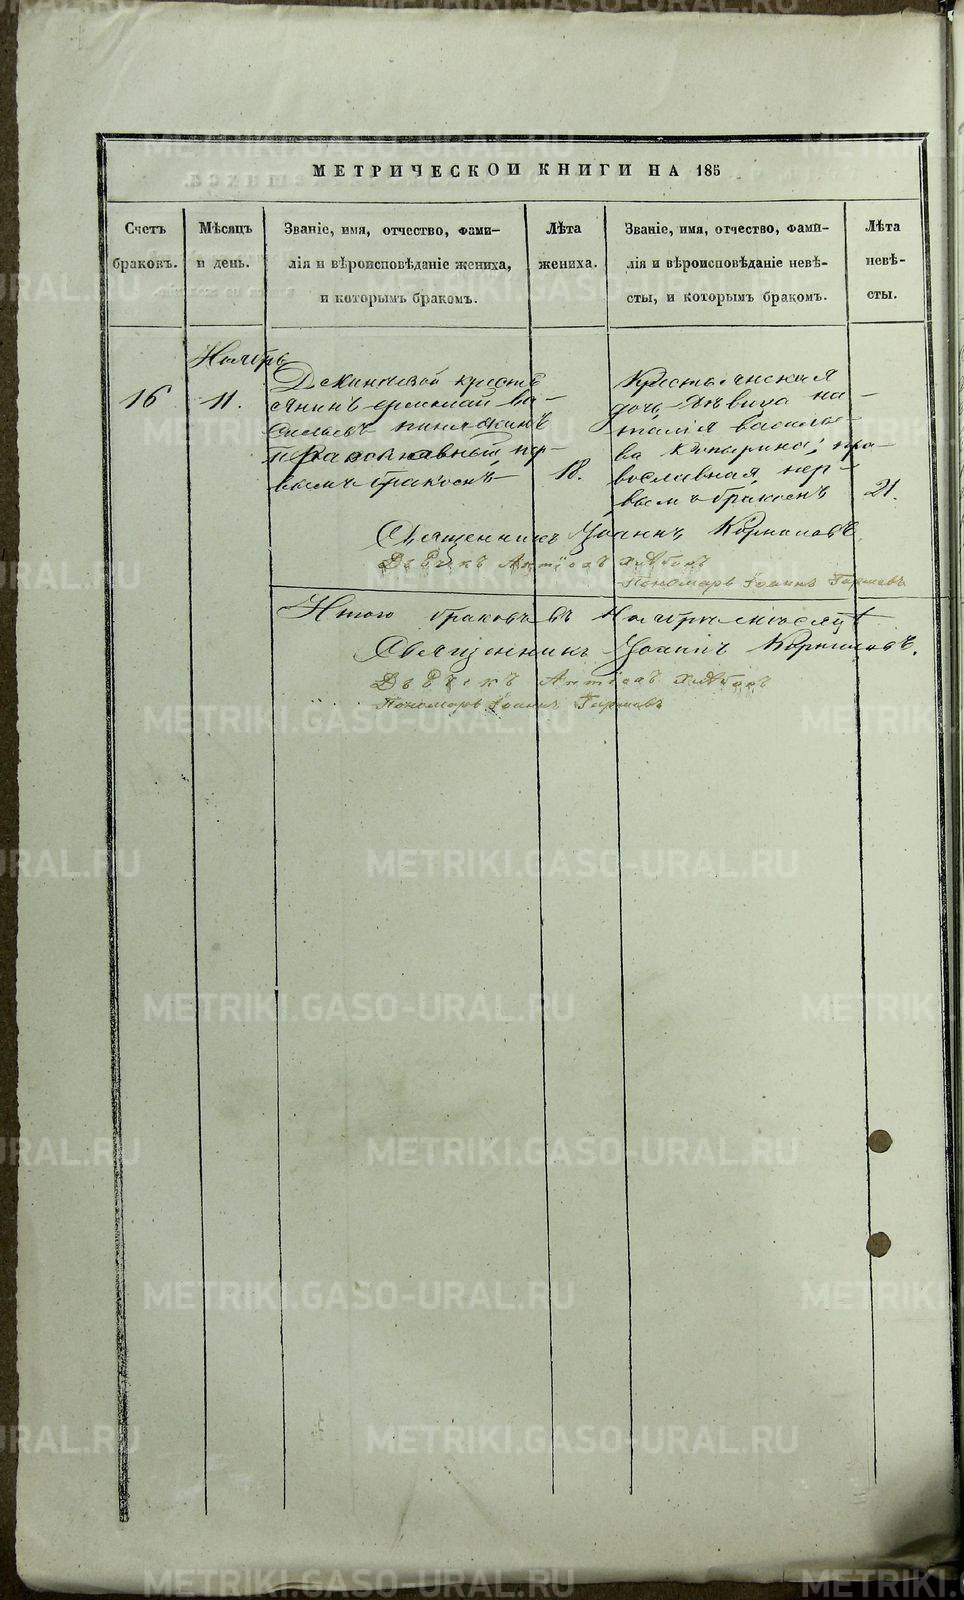 МЕТРИЧЕСКОЙ КНИГИ НА 185
Счетъ браковъ.
Мѣсяцъ и день.
Званіе, имя, отчество, фами-
лія и вѣроисповѣданіе жениха,
и которымъ бракомъ.
Лѣта
жениха.
Званіе, имя, отчество, фами-
лія и вѣроисповѣданіе невѣ-
сты, и которымъ бракомъ.
Лѣта
невѣ-
сты.
16
Ноябрь
11.
крестья
янинъ ермолай ва-
сильевъ
православный пер-
вымъ бракомъ
18.
Крестьянская
дочь дѣвица на-
талія василье-
ва пра-
вославная пер-
вымъ бракомъ
21.
Священникъ Іоаннъ Корниловъ
Дьячекъ
Пономарь Іоаннъ
Итого браковъ въ Ноябрѣ мѣсяцѣ 1
Священникъ Іоаннъ Корниловъ.
Дьячекъ
Пономарь Іоаннъ
METRIKI.GASO-URAL.RU